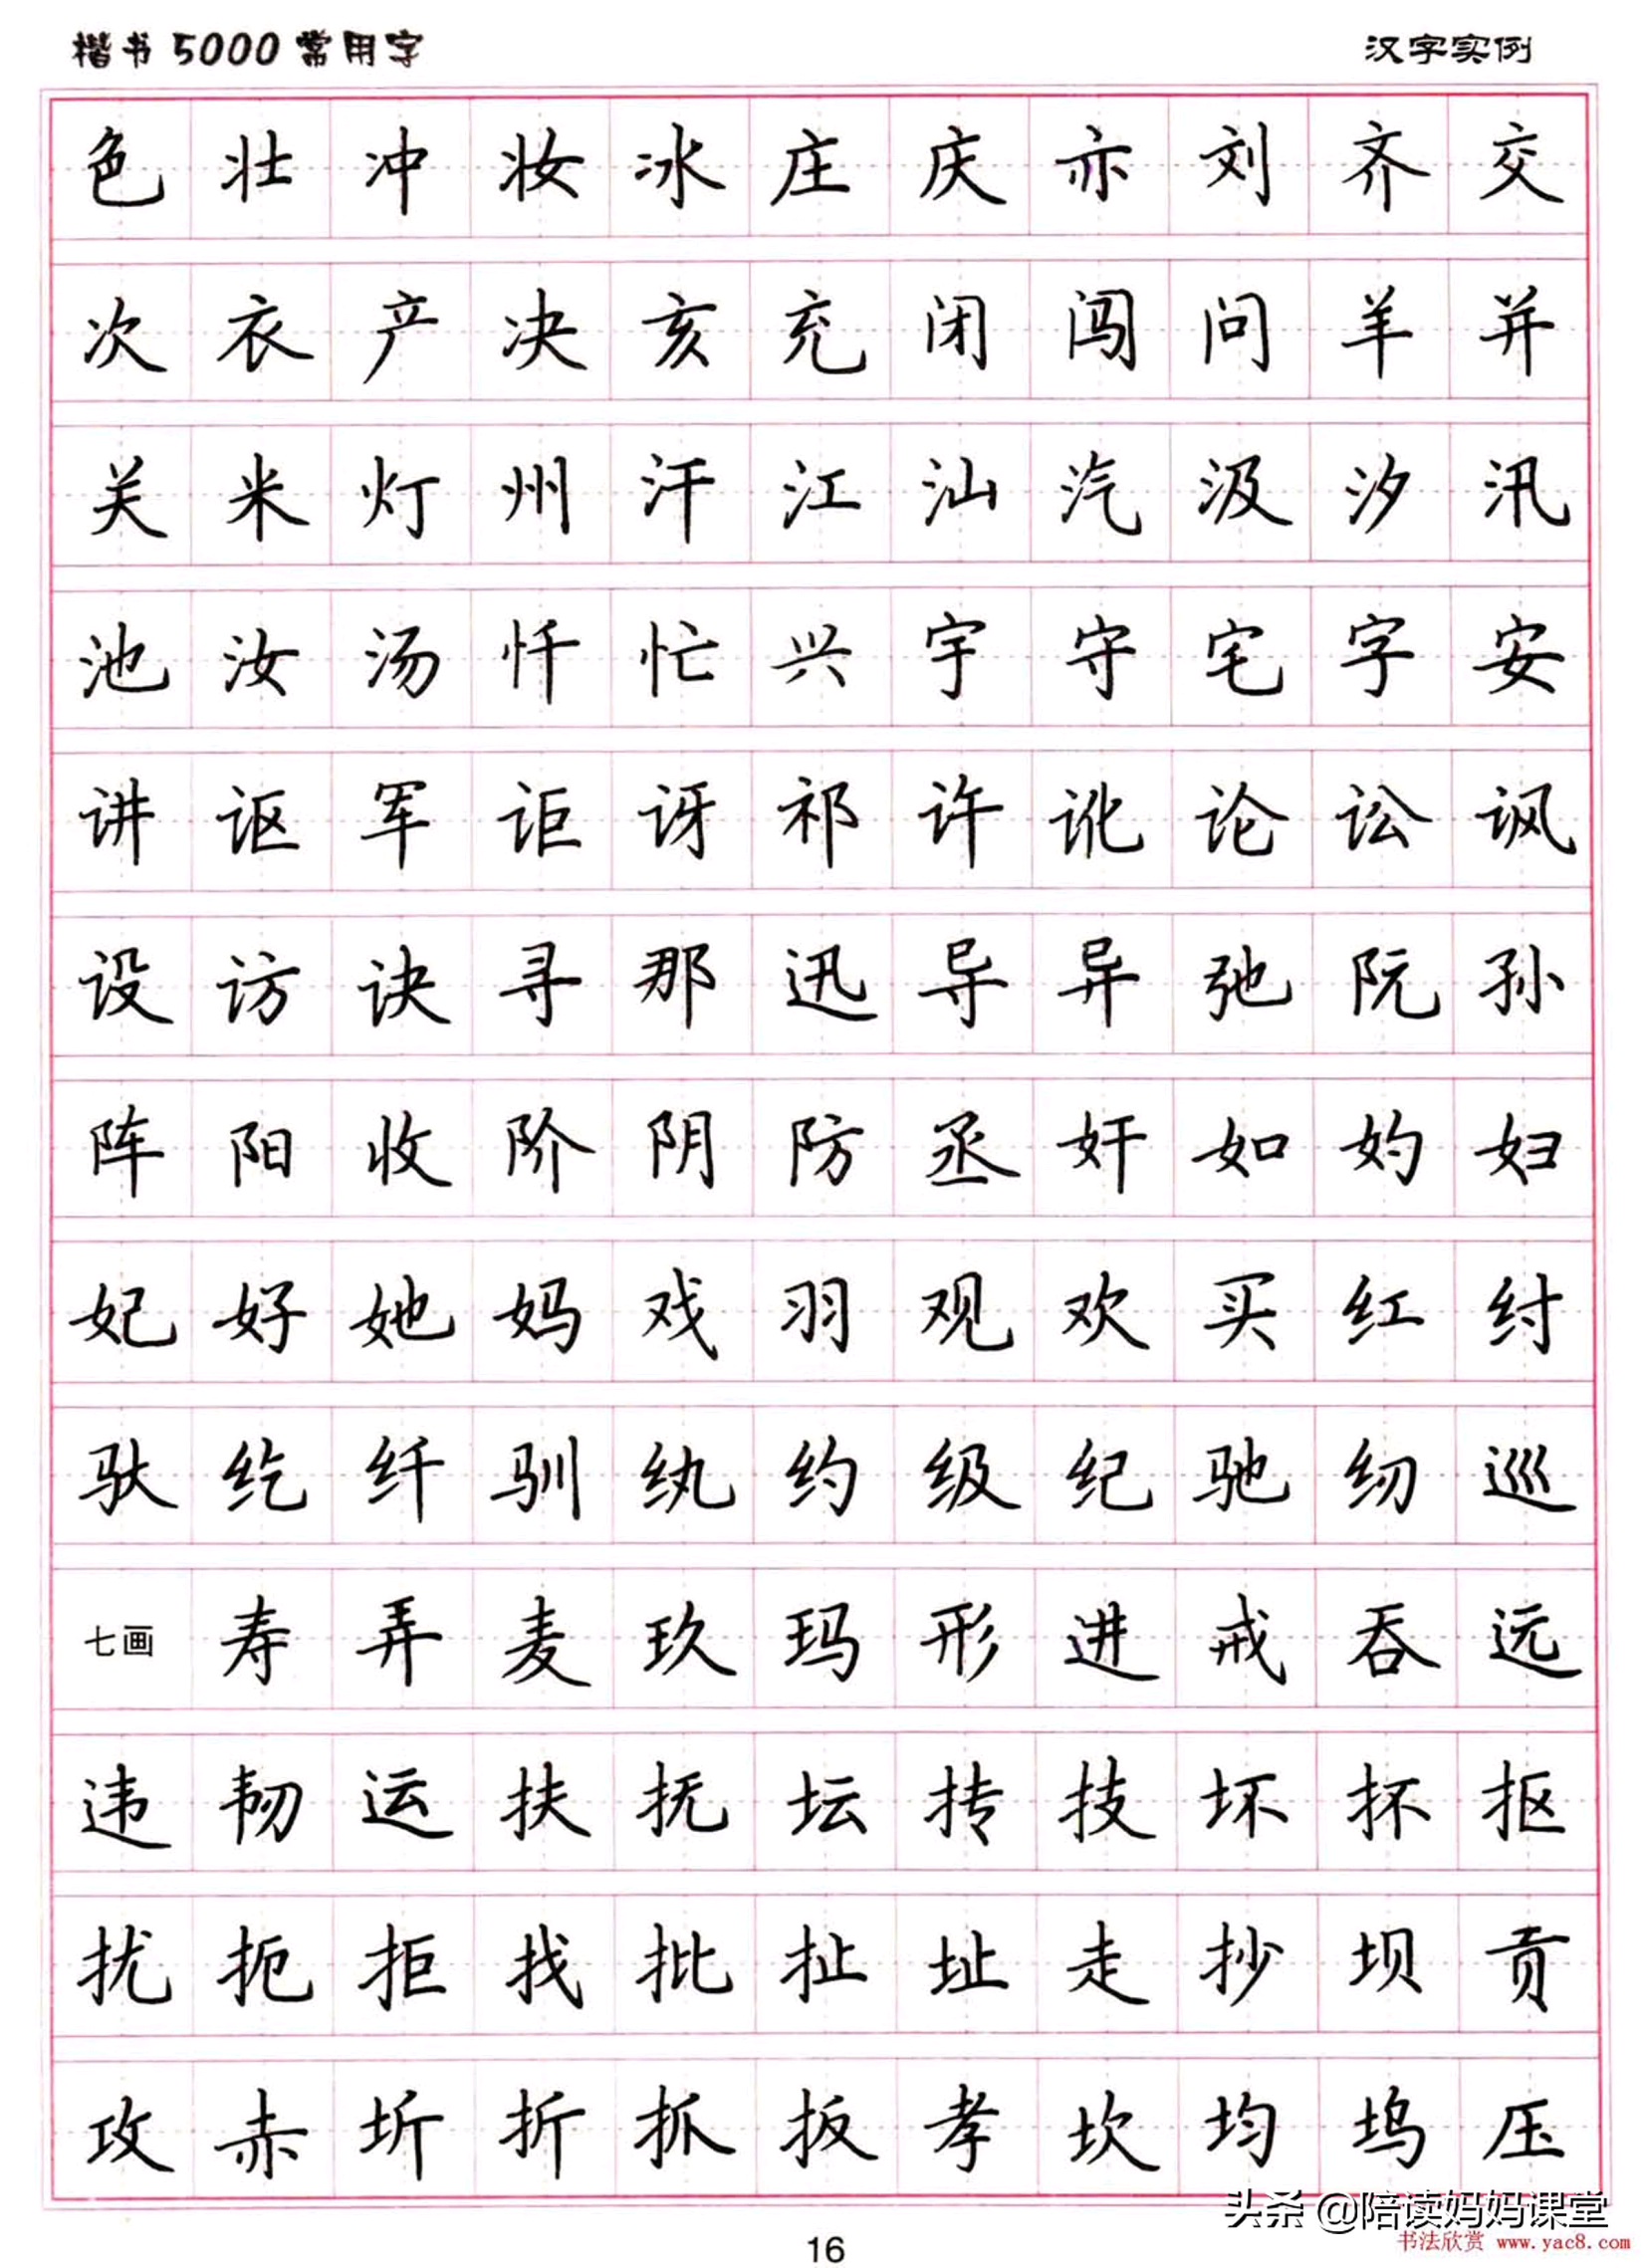 楷书5000常用字 汉字实例
色 壮 冲 妆 冰 庄 庆 亦 刘 齐 交
次 衣 产 决 亥 充 闭 闯 问 羊 并
关 米 灯 州 汗 江 汕 汽 汲 汐 汛
池 汝 汤 忏 忙 兴 宇 守 宅 字 安
讲 讴 军 讵 讶 祁 许 讹 论 讼 讽
设 访 诀 寻 那 迅 导 异 弛 阮 孙
阵 阳 收 阶 阴 防 丞 奸 如 妁 妇
妃 好 她 妈 戏 羽 观 欢 买 红 纣
驮 纥 纤 驯 纨 约 级 纪 驰 纫 巡
七画 寿 弄 麦 玖 玛 形 进 戒 吞 远
违 韧 运 扶 抚 坛 抟 技 坏 抔 抠
扰 扼 拒 找 批 扯 址 走 抄 坝 贡
攻 赤 圻 折 抓 扳 孝 坎 均 坞 压
头条 @陪读妈妈课堂
书法欣赏 www.yac8.com
16